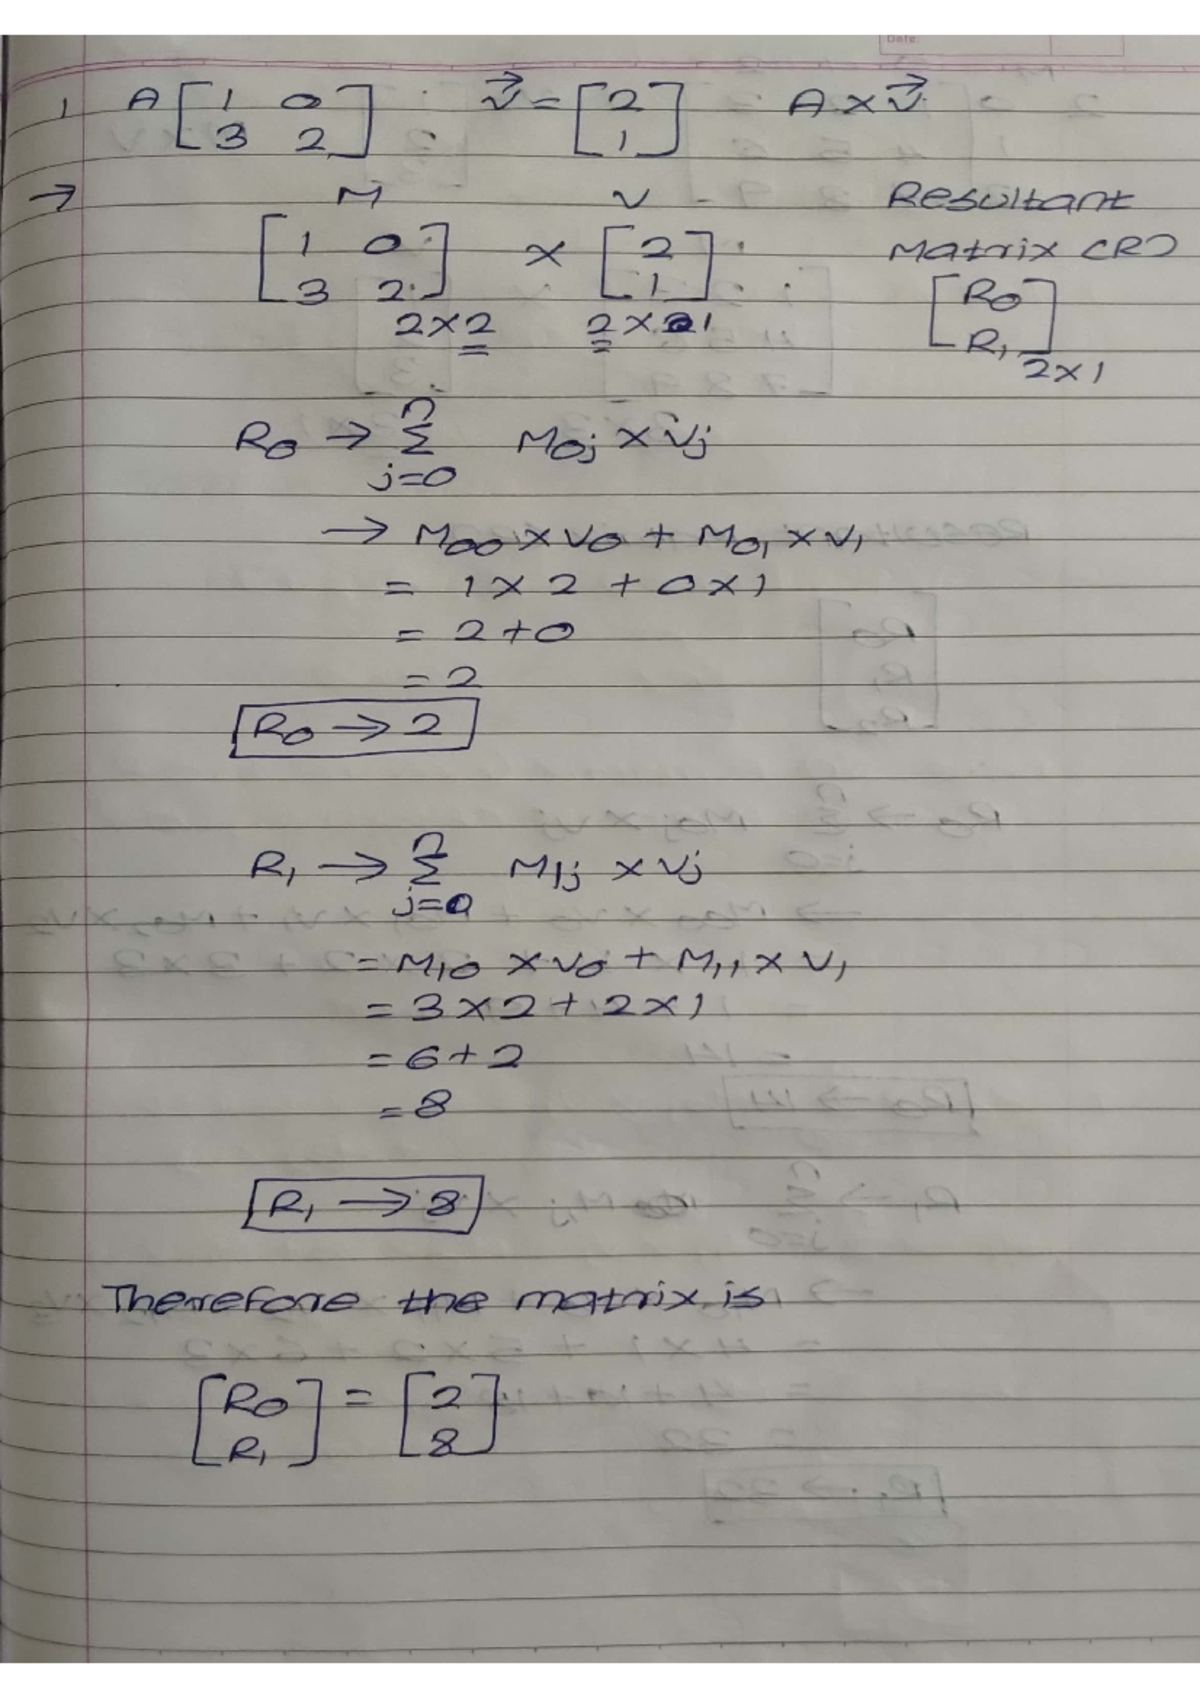 Date:
1 A [1 0 3 2] v⃗ = [2 1] A × v⃗
→ M v Resultant
[1 0 3 2] × [2 1] Matrix (R)
2×2 2×1 [R0 R1] 2×1
R0 → Σ n j=0 M0j × vj
→ M00 × v0 + M01 × v1
= 1 × 2 + 0 × 1
= 2 + 0
= 2
R0 → 2
R1 → Σ n j=0 M1j × vj
= M10 × v0 + M11 × v1
= 3 × 2 + 2 × 1
= 6 + 2
= 8
R1 → 8
Therefore the matrix is
[R0 R1] = [2 8]